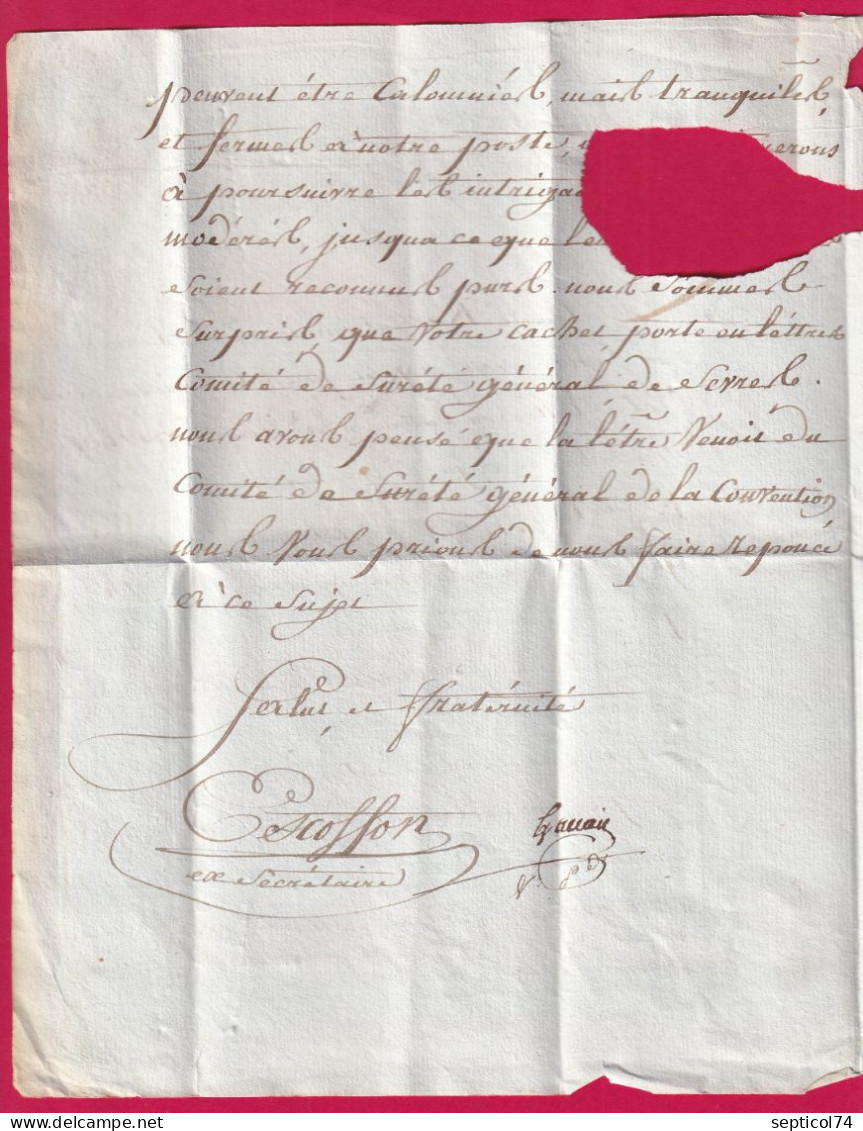 peuvent étre Calomniés, mais tranquiles
et fermes à notre poste, verons
à poursuivre les intrig
modérés, jusqua ce que le
soient reconnus purs. nous sommes
surpris que votre cachet porte en léttres
Comité de Surété général de Sevres.
nous avons pensé que la létre Venoit du
Comité de Surété général de la Convention
nous Vous prions de nous faire reponce
à ce Sujet
Salut et fraternité
Escoffon
ex Secrétaire
delcampe.net
septicol74